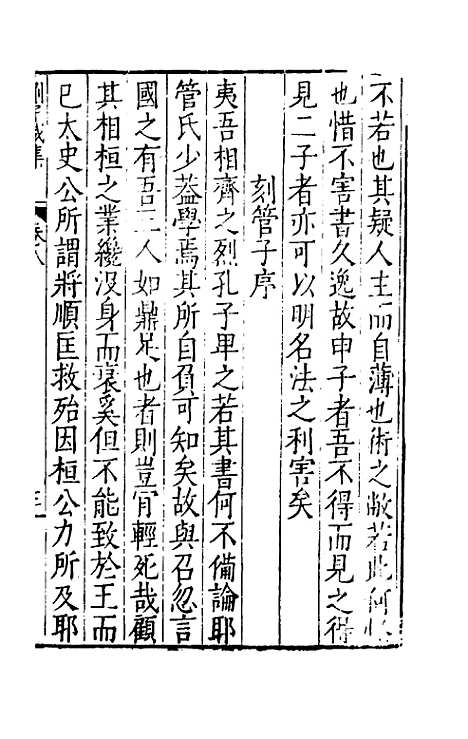 不若也其疑人主而自薄也術之敝若此何
也惜不害書久逸故申子者吾不得而見之得
見二子者亦可以明名法之利害矣
刻管子序
夷吾相齊之烈孔子卑之若其書何不備論耶
管氏少蓋學焉其所自負可知矣故與召忽言
國之有吾三人如鼎足也者則豈肎輕死哉顧
其相桓之業纔沒身而衰奚但不能致於王而
已太史公所謂將順匡救殆因桓公力所及耶
卷八